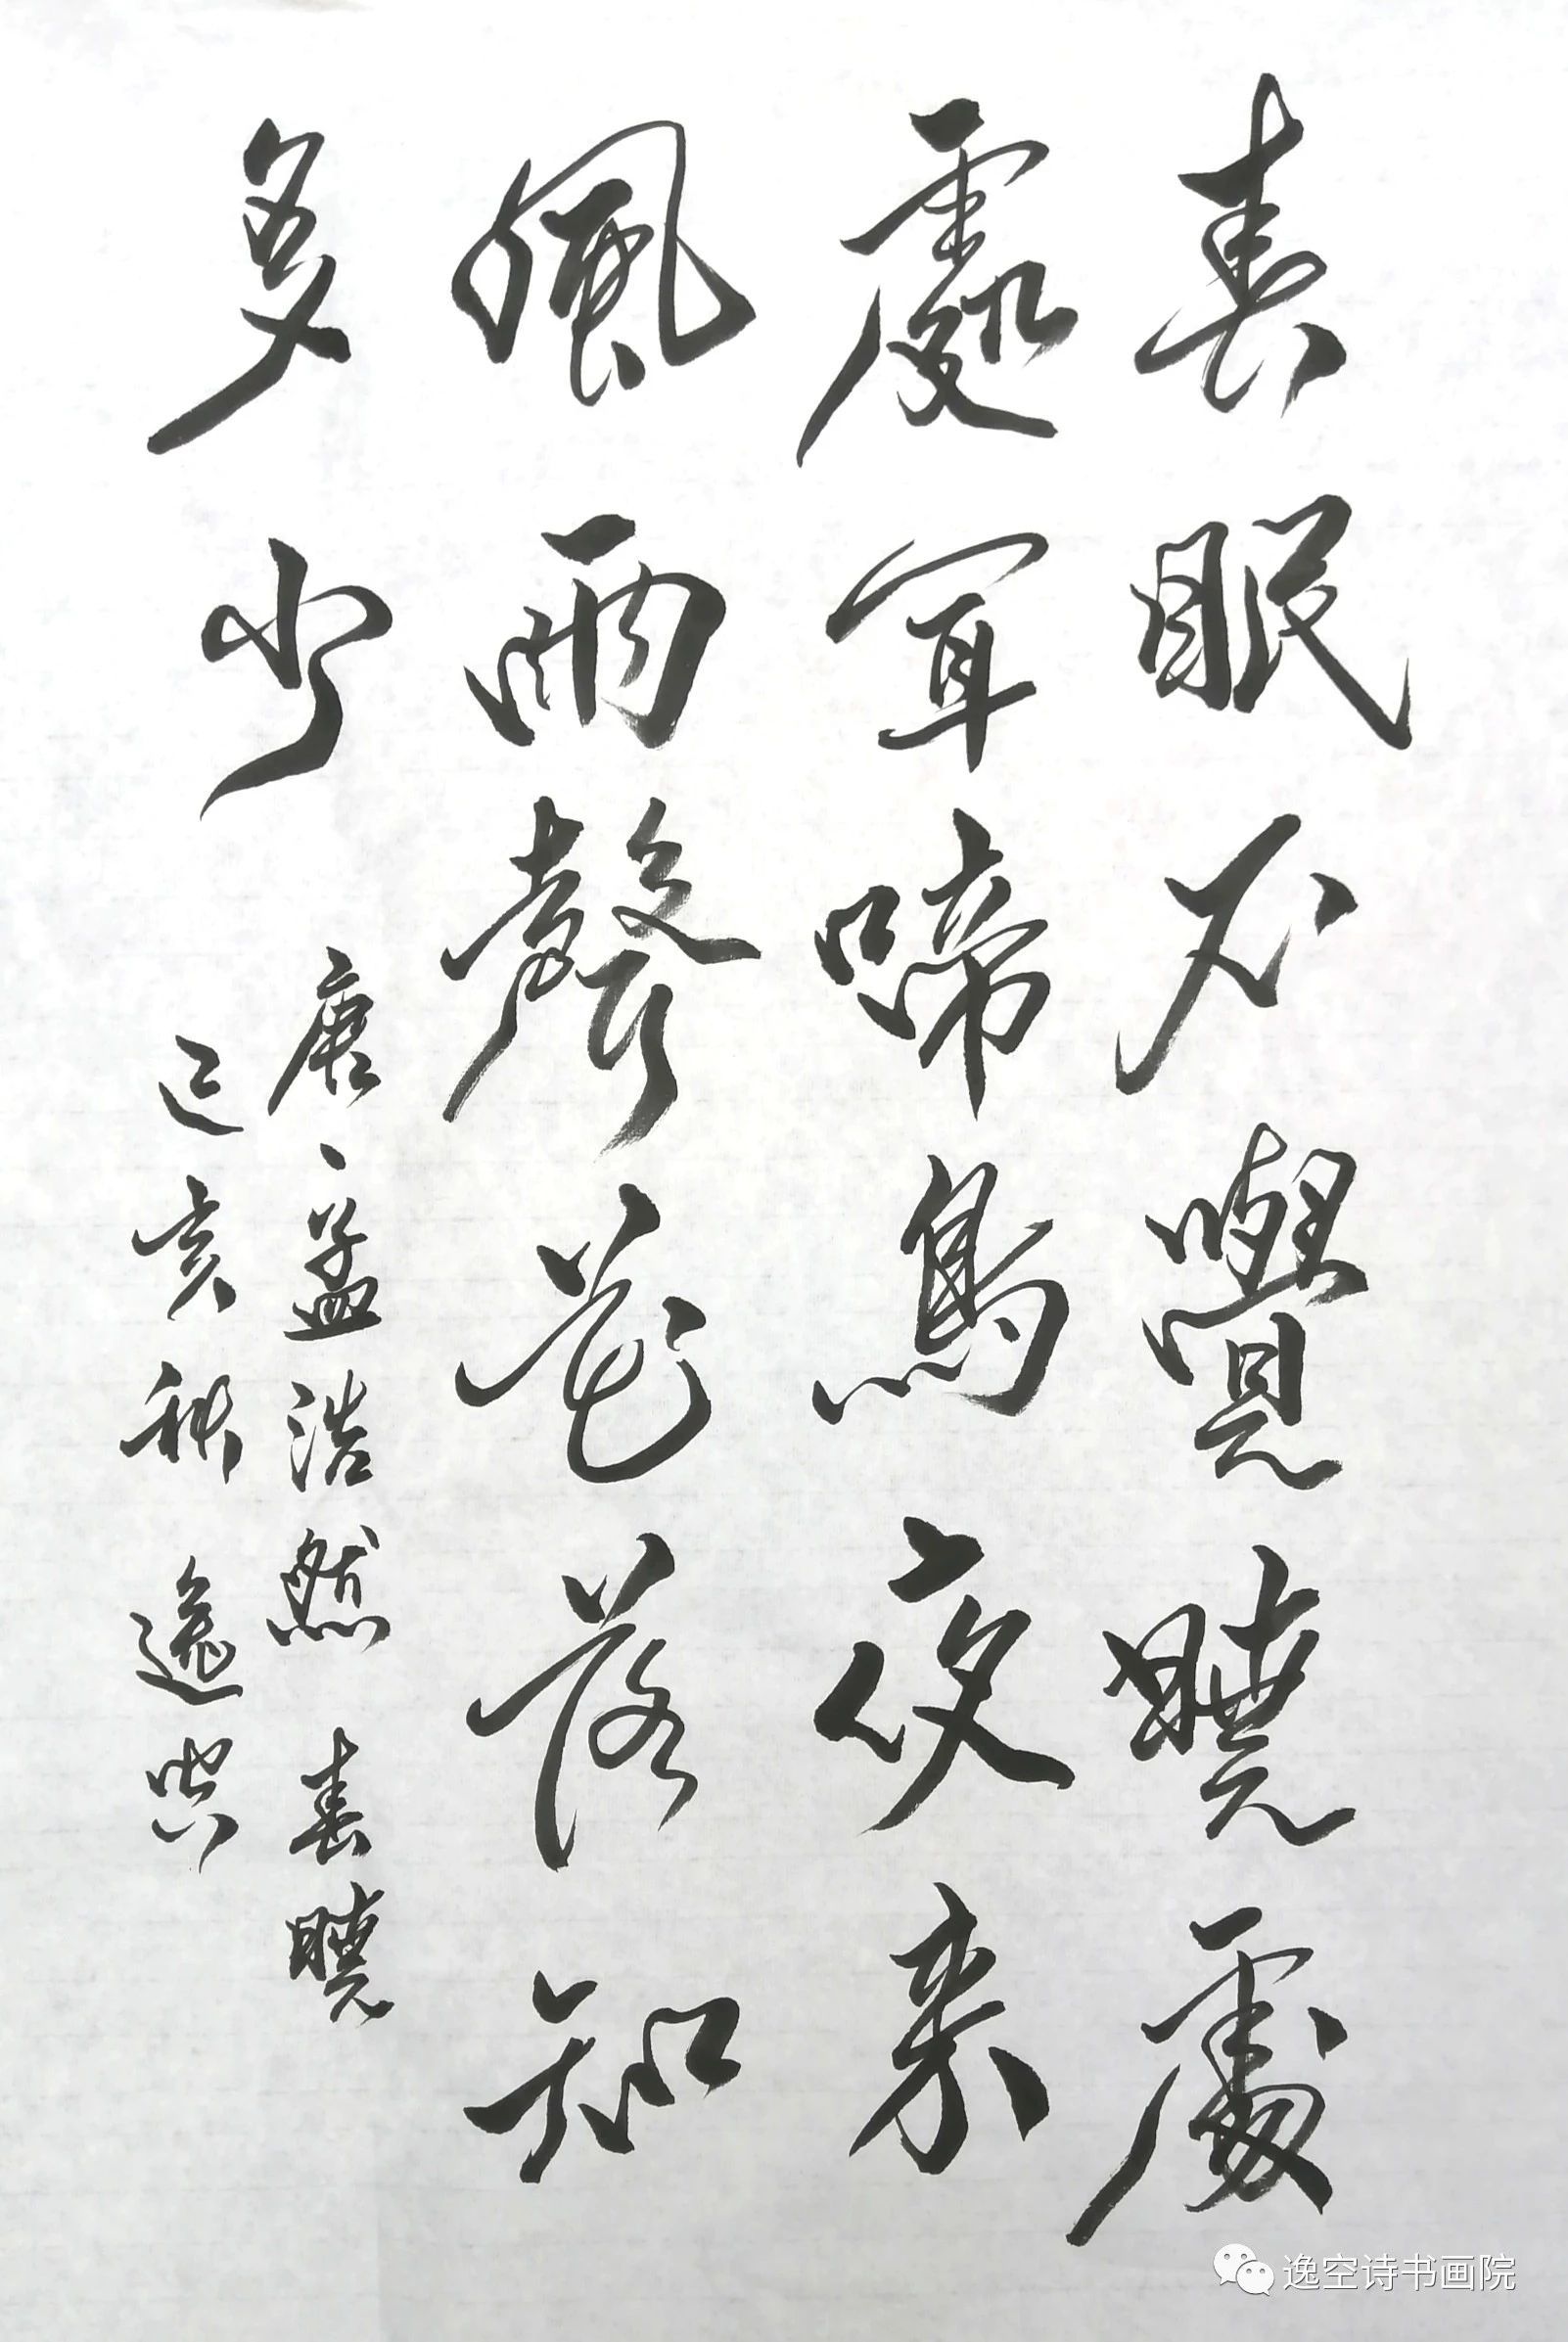 春眠不覺曉處
處聞啼鳥夜来
風雨聲花落知
多少
唐、孟浩然 春曉
己亥秋 逸空
逸空诗书画院